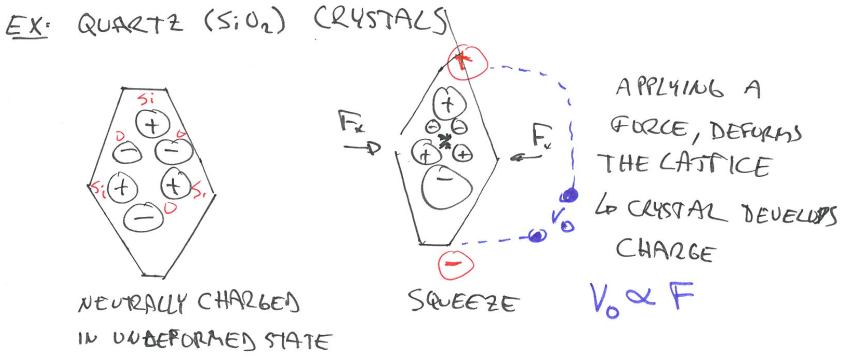 EX: QUARTZ (SiO₂) CRYSTALS
Si
+
O O
- -
Si + + Si
- O
NEUTRALLY CHARGED
IN UNDEFORMED STATE
+
+
- -
+ +
-
-
Fx Fx
SQUEEZE
Vo
APPLYING A
FORCE, DEFORMS
THE LATTICE
↳ CRYSTAL DEVELOPS
CHARGE
Vo ∝ F